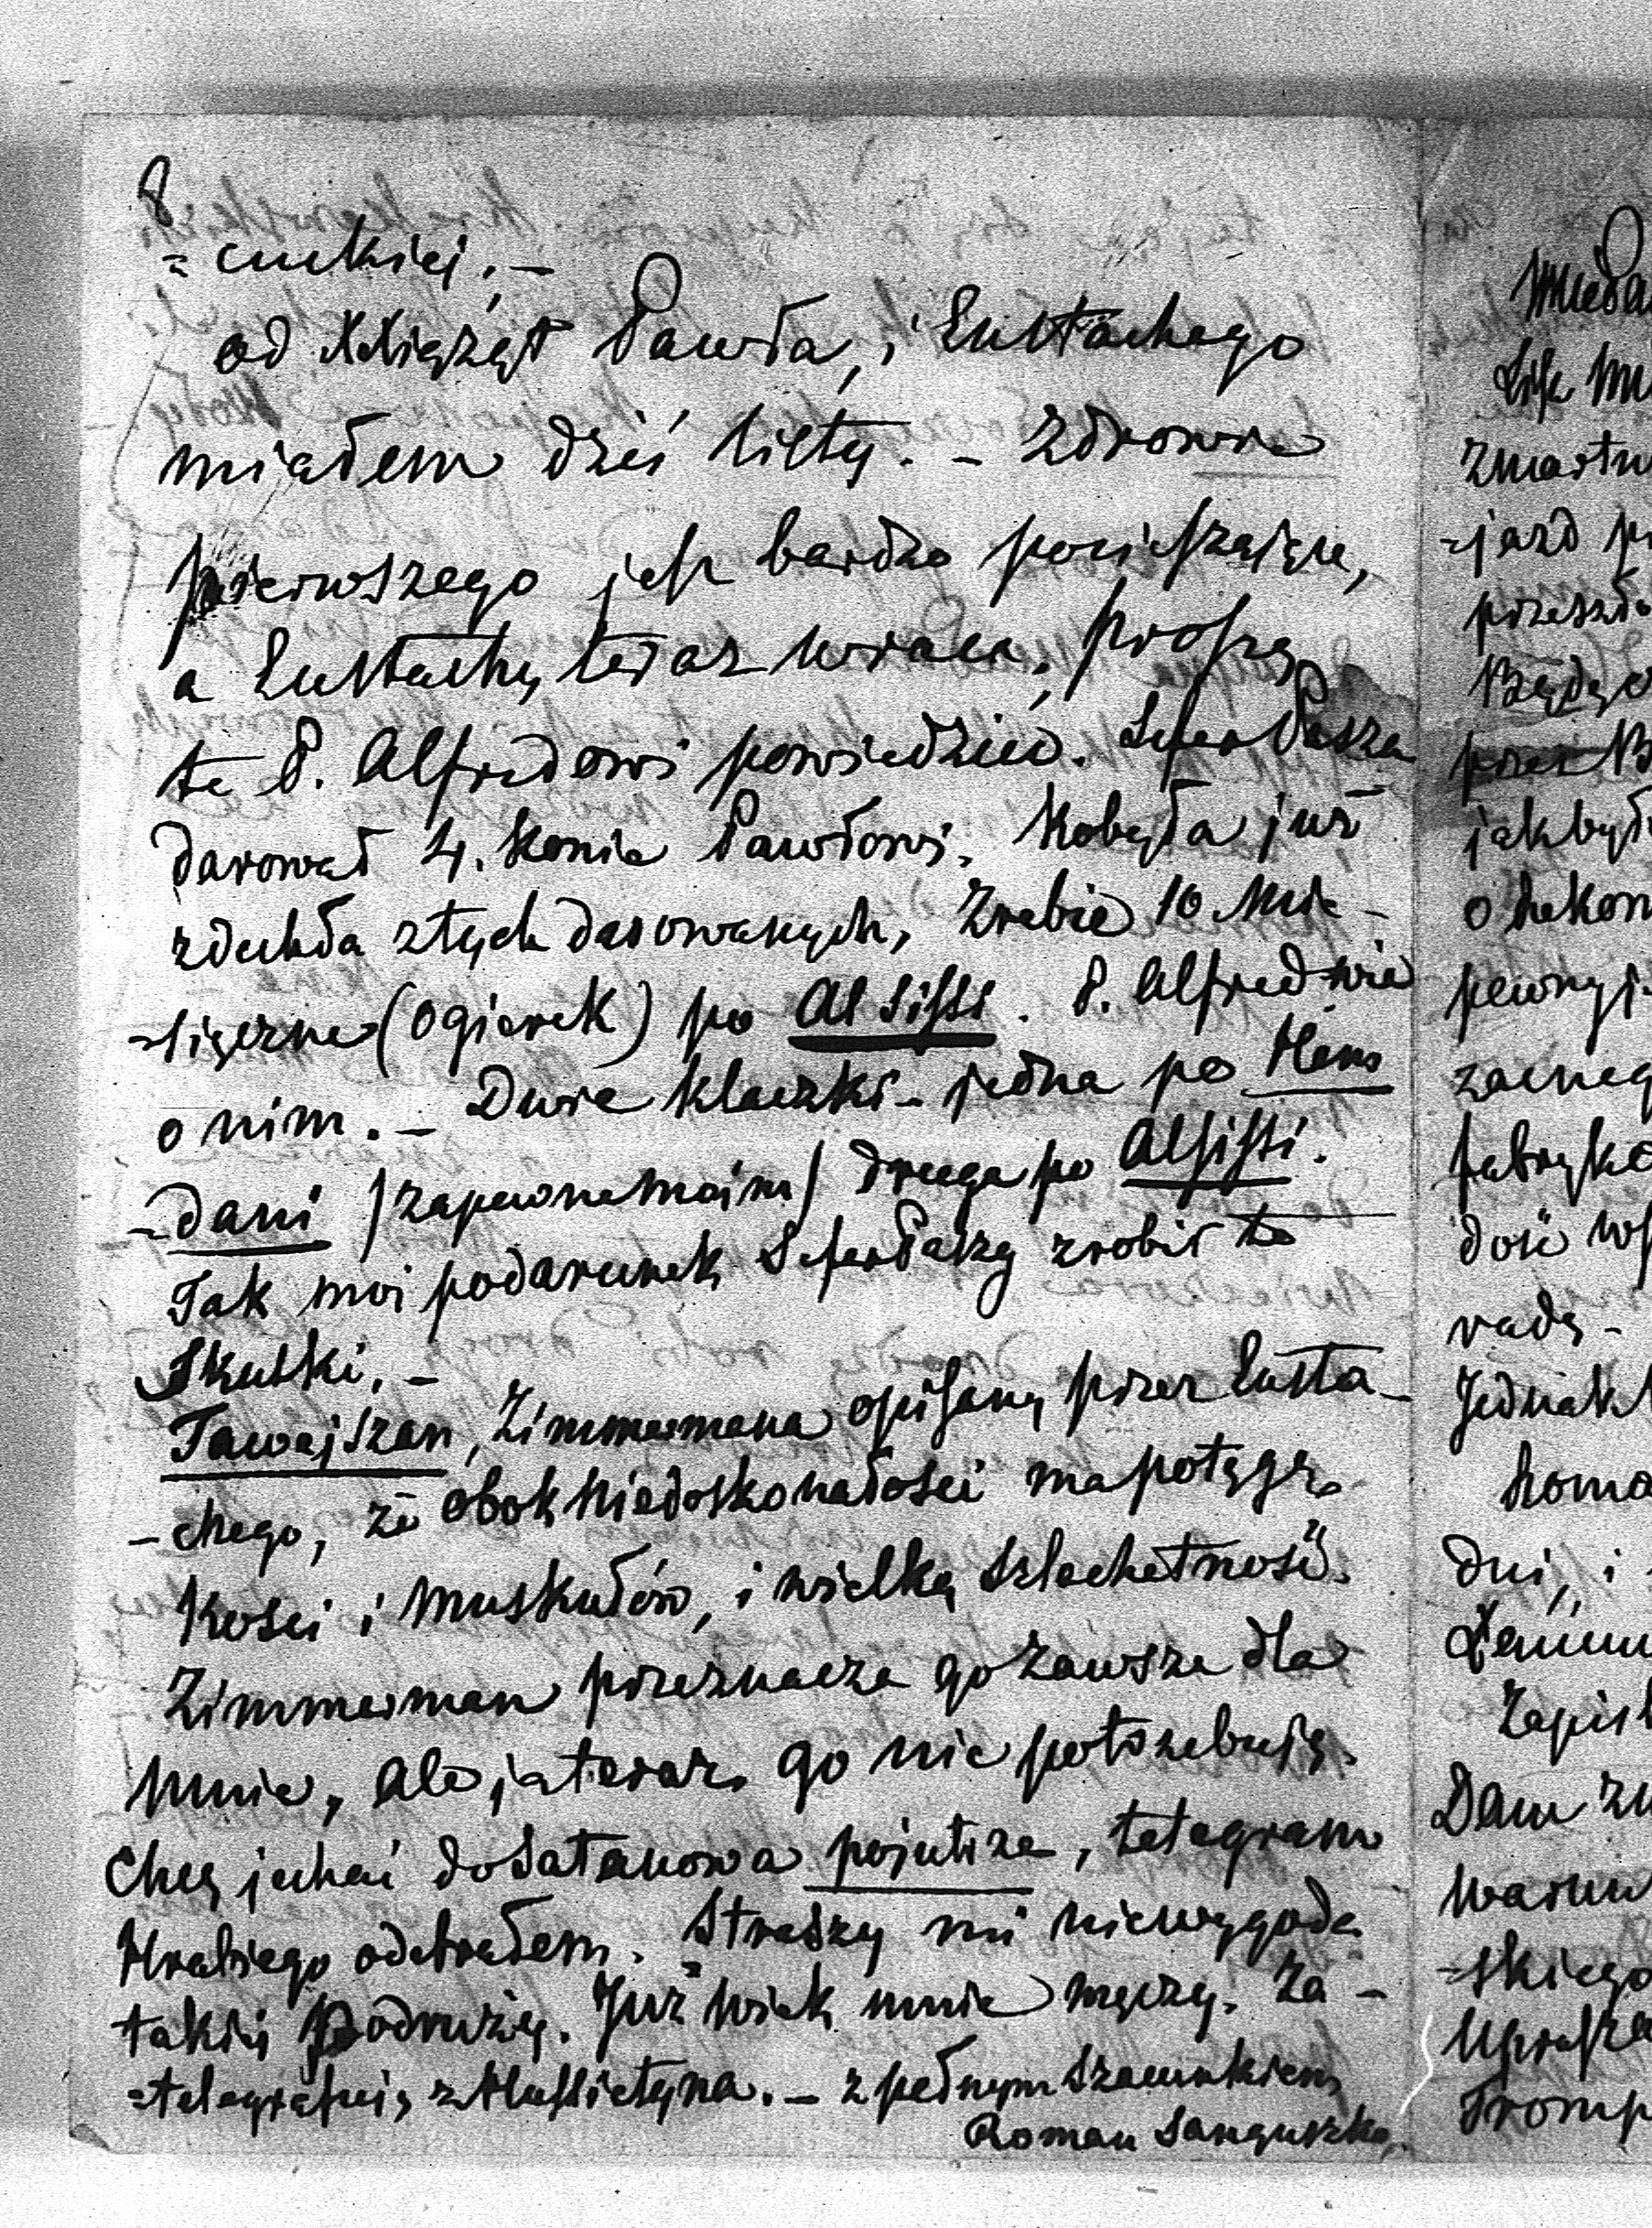 8
=cuckiej. –
od XXiążąt Pawła, i Eustachego
miałem dziś listy. – Zdrowie
pierwszego jest bardzo pocieszające,
a Eustachy teraz wraca, proszę
te P. Alfredowi powiedzieć. Sefer Pasza
darował 4. konie Pawłowi. Kobyła już
zdechła z tych darowanych, Zrebie 10 Mie-
=sięczne (Ogierek) po Al Sissi. P. Alfred wie
o nim. – Dwie klaczki – jedna po Ham
-dani /zapewne moim/ druga po Alsissi.
Tak moi podarunek Sefer Paszy zrobił te
Skutki. –
Tawajszan, Zimmermana opisany przez Eusta-
-chego, że obok niedoskonałości ma potęgę
kości i muskułów, i wielką szlachetność.
Zimmerman przeznacza go zawsze dla
mnie, ale ja teraz go nie potrzebuję.
Chcę jechać do Satanowa pojutrze, telegram
Hrabiego odebrałem. Straszy mi niewygoda
takiej Podróży. Już wiek mnie męczy. Za-
=telegrafuję z Hussiatyna. – z pełnym szacunkiem
Roman Sanguszko.
zmartw
-jazd
przeszło
pewny
fabryk
dość
radą -
Jednak
dni, i
Dam
-skiego